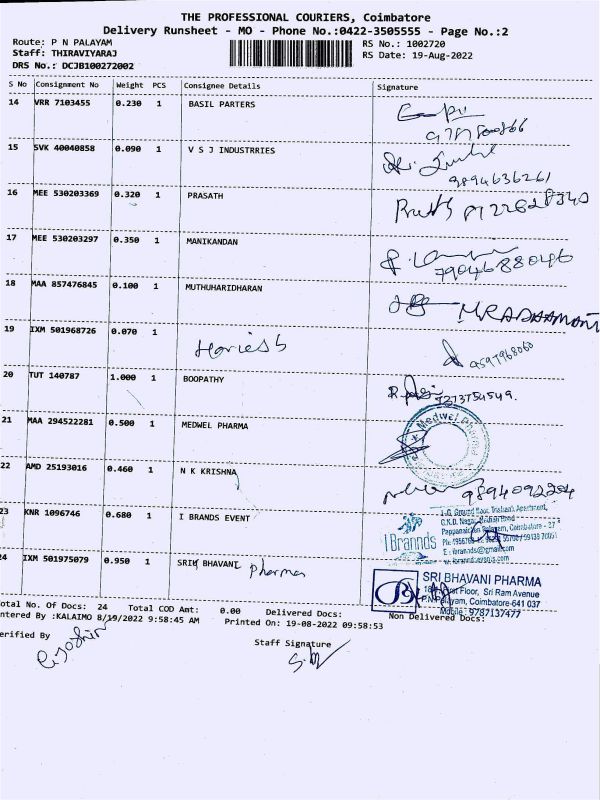 THE PROFESSIONAL COURIERS, Coimbatore
Delivery Runsheet - MO - Phone No.:0422-3505555 - Page No.:2
Route: P N PALAYAM
Staff: THIRAVIYARAJ
DRS No.: DCJB100272002
RS No.: 1002720
RS Date: 19-Aug-2022
S No Consignment No Weight PCS Consignee Details Signature
14 VRR 7103455 0.230 1 BASIL PARTERS
15 SVK 40040858 0.090 1 V S J INDUSTRRIES
9894636261
16 MEE 530203369 0.320 1 PRASATH
17 MEE 530203297 0.350 1 MANIKANDAN
7904688046
18 MAA 857476845 0.100 1 MUTHUHARIDHARAN
19 IXM 501968726 0.070 1
9597968060
20 TUT 140787 1.000 1 BOOPATHY
21 MAA 294522281 0.500 1 MEDWEL PHARMA
Medwel Pharma
22 AMD 25193016 0.460 1 N K KRISHNA
9894092204
23 KNR 1096746 0.680 1 I BRANDS EVENT
I Brannds
Coimbatore - 27
E : ibrannds@gmail.com
24 IXM 501975079 0.950 1 SRI BHAVANI Pharma
SRI BHAVANI PHARMA
Floor, Sri Ram Avenue
P.N.Palayam, Coimbatore-641 037
Mobile : 9787137477
otal No. Of Docs: 24 Total COD Amt: 0.00 Delivered Docs: Non Delivered Docs:
ntered By :KALAIMO 8/19/2022 9:58:45 AM Printed On: 19-08-2022 09:58:53
erified By
Staff Signature